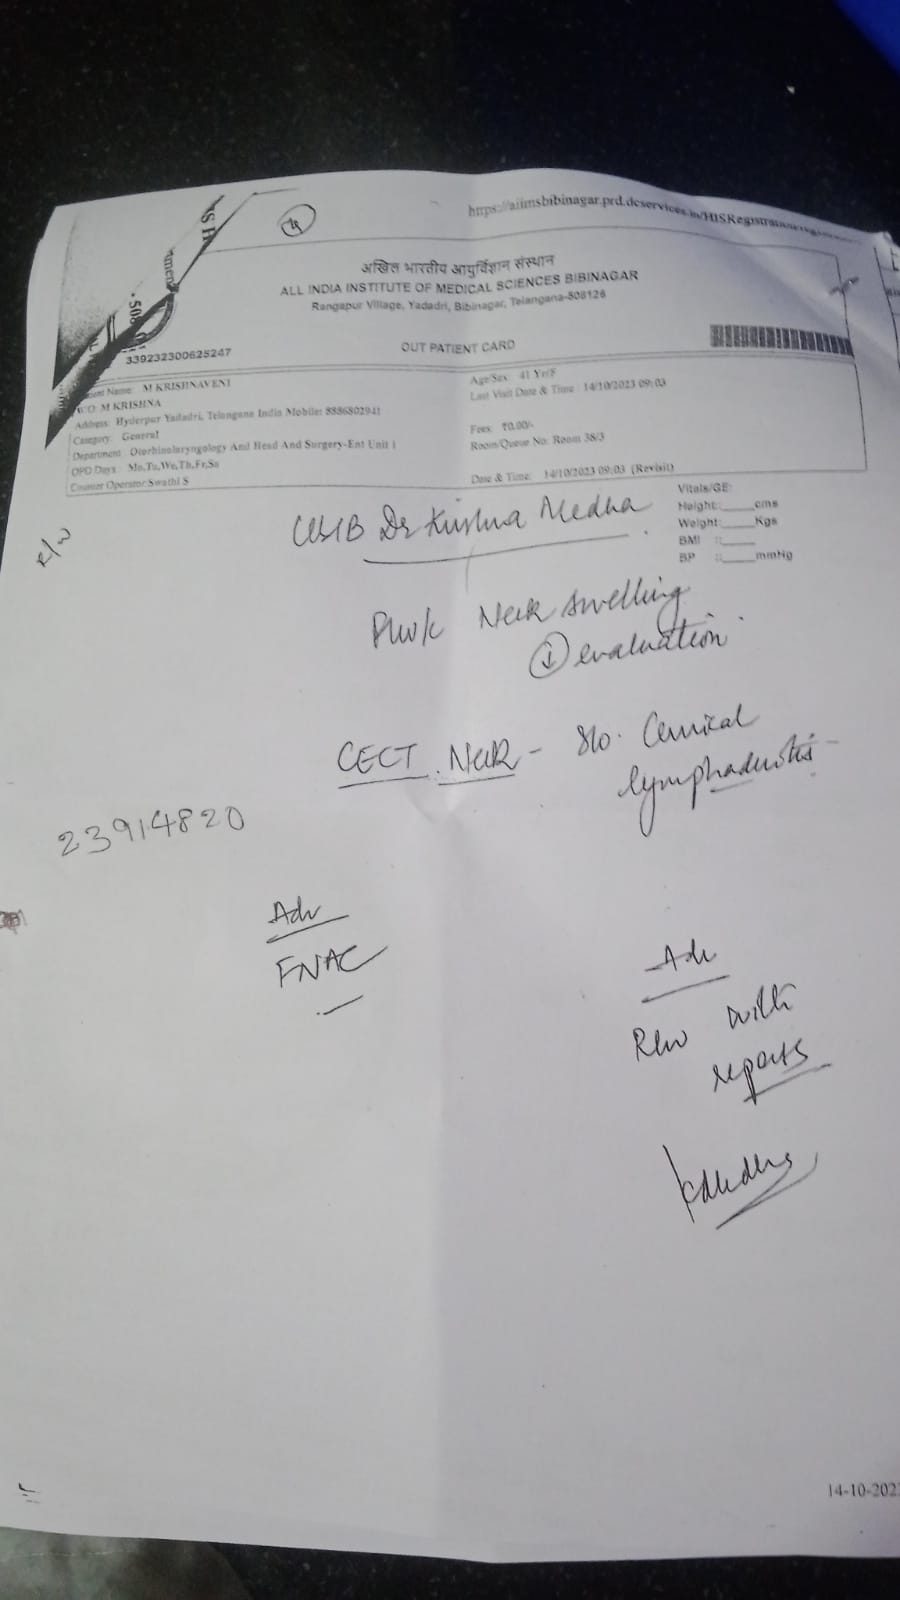 https://aiimsbibinagar.prd.dcservices.in/HISRegistration
अखिल भारतीय आयुर्विज्ञान संस्थान
ALL INDIA INSTITUTE OF MEDICAL SCIENCES BIBINAGAR
Rangapur Village, Yadadri, Bibinagar, Telangana-508126
OUT PATIENT CARD
339232300625247
Name: M KRISHNAVENI
W/O. M KRISHNA
Address: Hyderpur Yadadri, Telangana India Mobile: 8886802941
Category: General
Department: Otorhinolaryngology And Head And Surgery-Ent Unit 1
OPD Days: Mo,Tu,We,Th,Fr,Sa
Counter Operator: Swathi S
Age/Sex: 41 Yr/F
Last Visit Date & Time : 14/10/2023 09:03
Fees: ₹0.00/-
Room/Queue No: Room 38/3
Date & Time: 14/10/2023 09:03 (Revisit)
Vitals/GE:
Height: cms
Weight: Kgs
BMI :
BP : mmHg
R/W
Dr Krishna Medha
Neck swelling
evaluation
CECT Neck - S/o. Cervical
lymphadenitis
23914820
Adv
FNAC
Adv
Rev with
reports
14-10-202